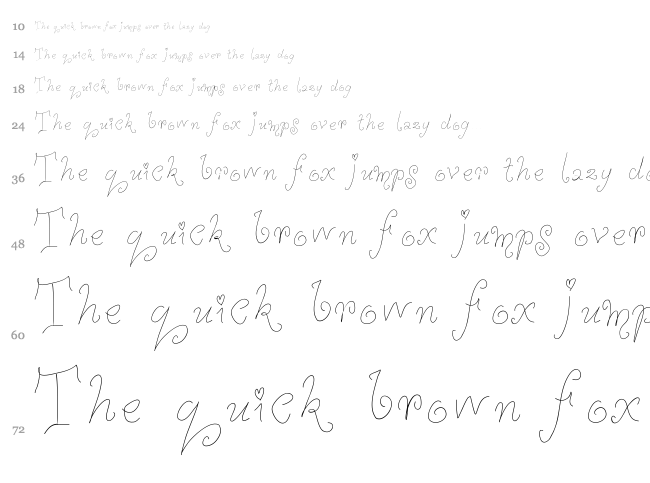 10 The quick brown fox jumps over the lazy dog
14 The quick brown fox jumps over the lazy dog
18 The quick brown fox jumps over the lazy dog
24 The quick brown fox jumps over the lazy dog
36 The quick brown fox jumps over the lazy do
48 The quick brown fox jumps over
60 The quick brown fox jump
72 The quick brown fox